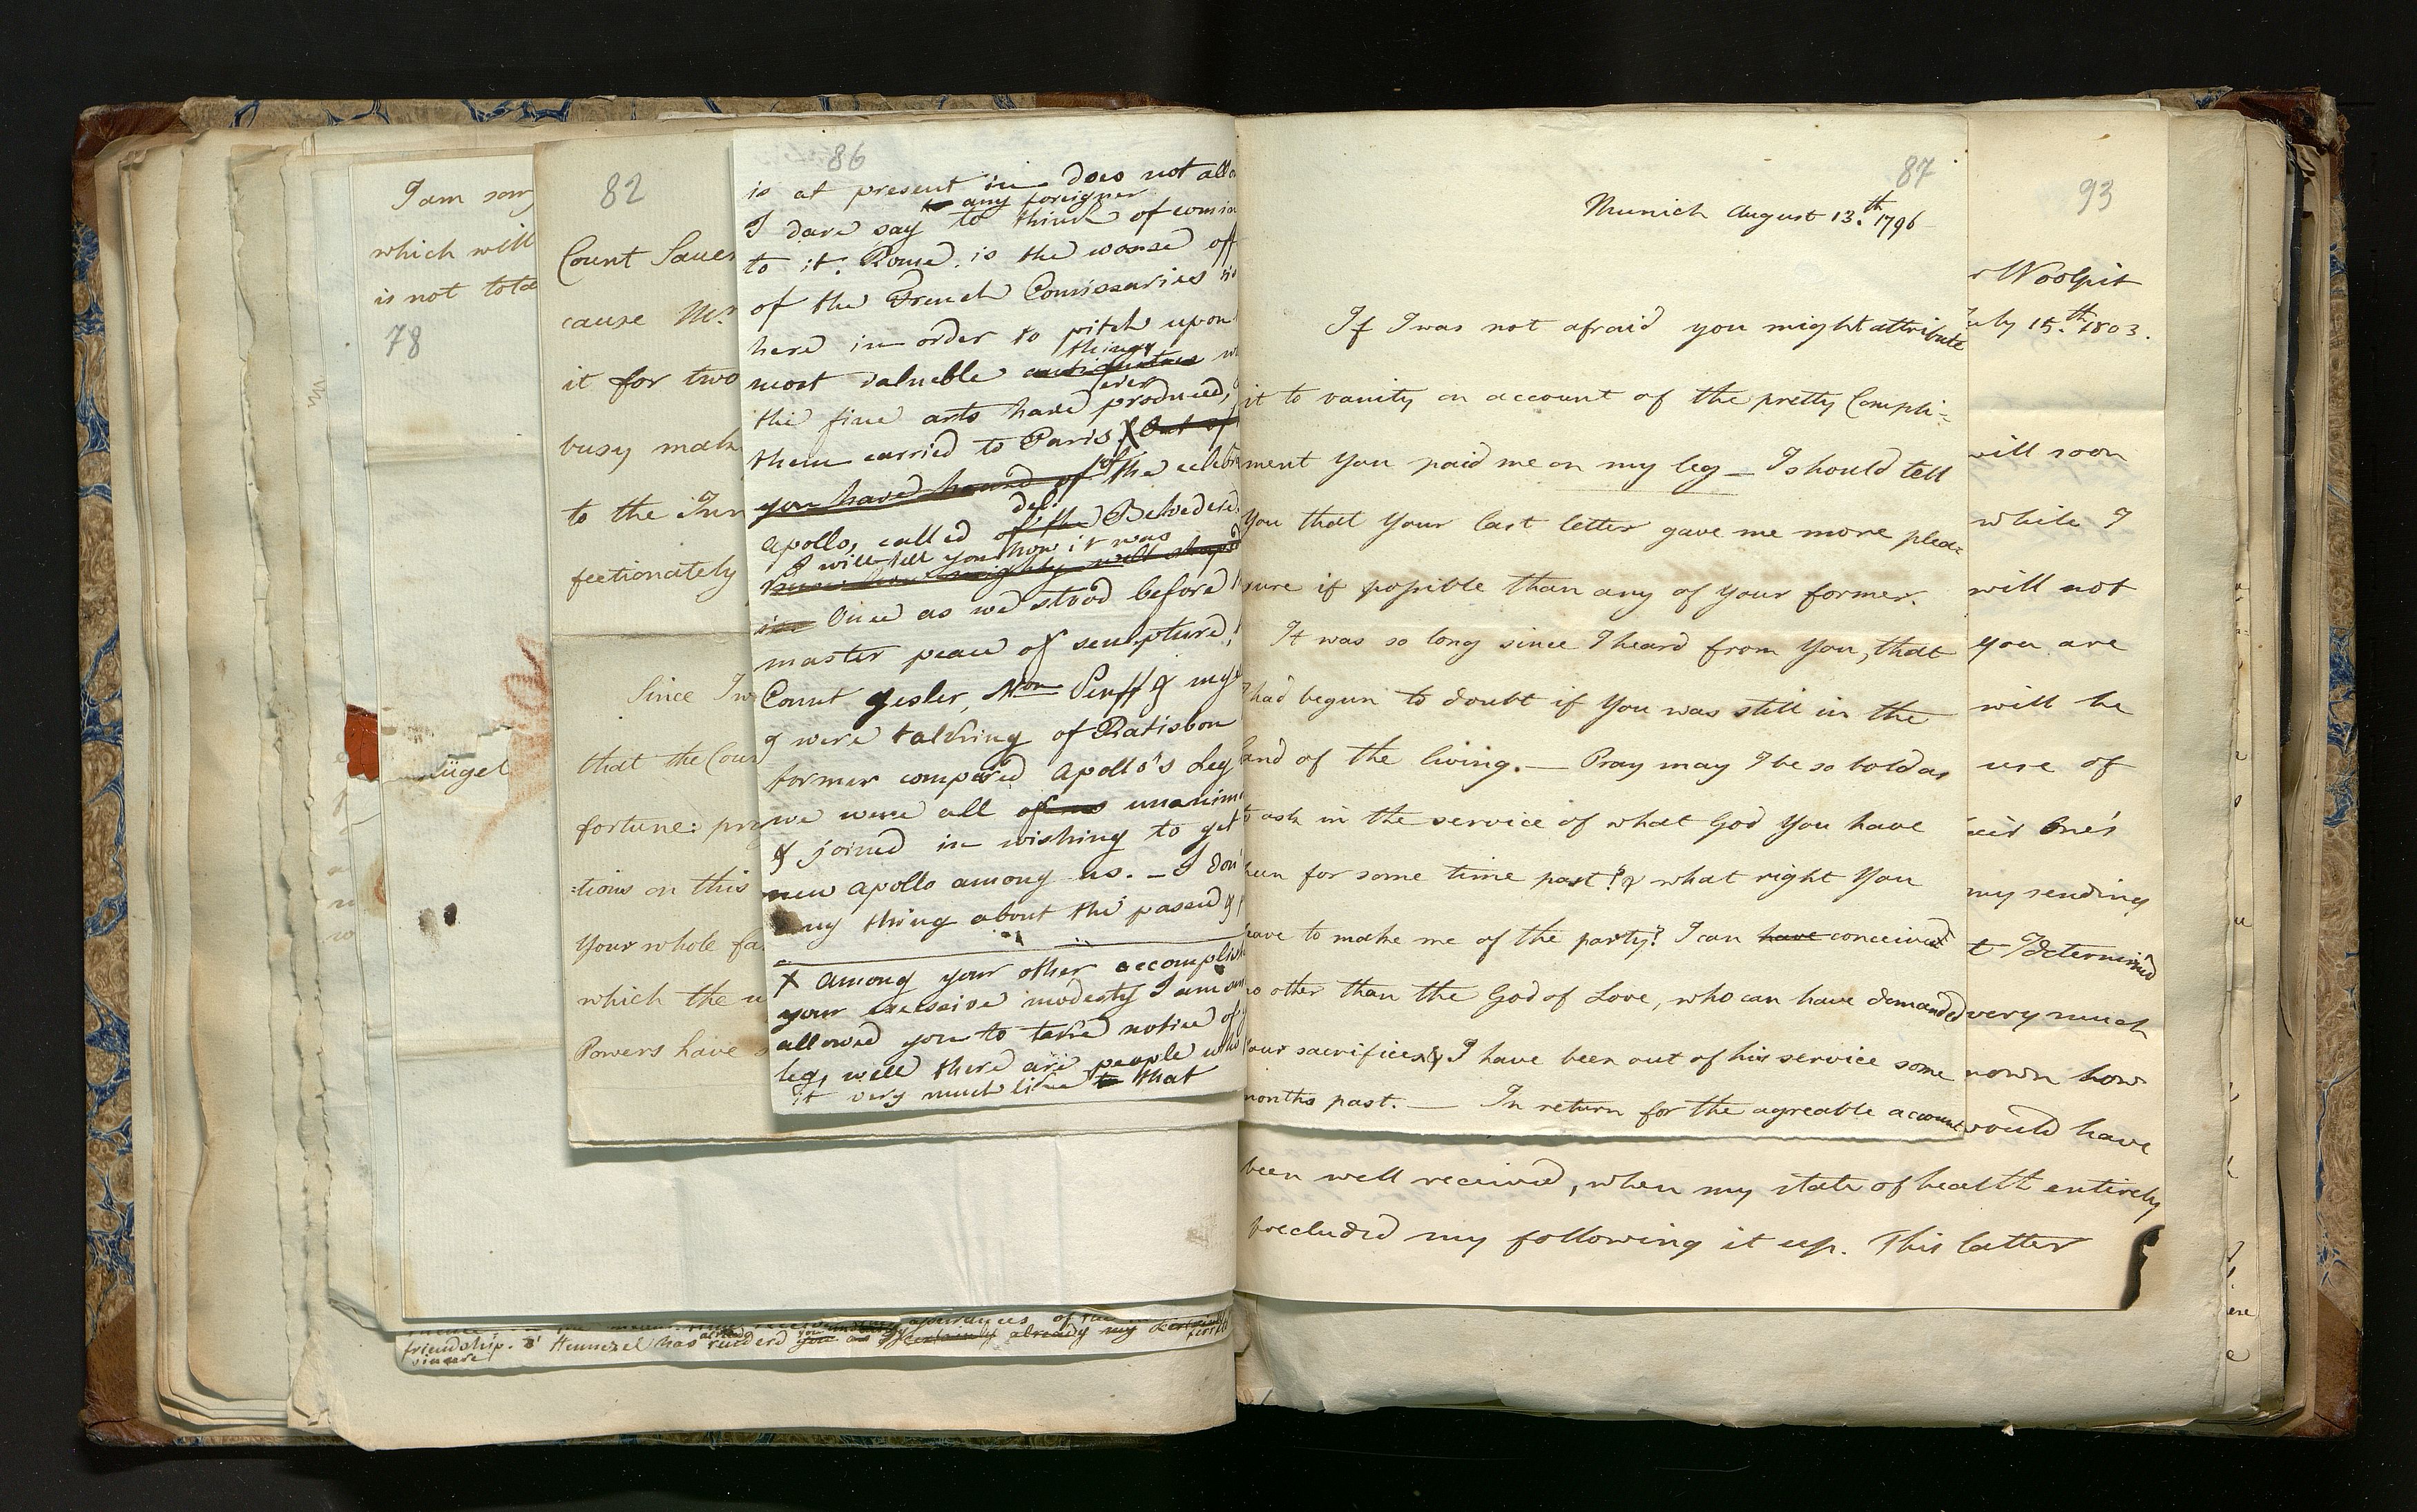 I am sorry
which will
is not tota
78
ügel
82
Count Sauer
cause Mr
it for two
busy mak
to the Inn
fectionately
Since I w
that the Coun
fortune: pr
=tions on this
Your whole fa
which the u
Powers have
86
is at present in does not allo
any foreigner
I dare say to think of comin
to it. Rome is the worse off
of the French Comissaries
here in order to pitch upon
things
most valuable antiquities
ever
the fine arts have produced,
them carried to Paris X But of
you have heard of the celebr
del
Apollo, called of the Belvedere
I will tell you how it was
know how mighty well shaped
is Once as we stood before
master peace of sculpture,
Count Gesler, Mon Penff & myse
& were talking of Ratisbon
former compared Apollo's Leg
we were all of us unanim
& joined in wishing to get
new Apollo among us. – I don't
any thing about the passed
X Among your other accomplish
your excessive modesty I am
allowed you to take notice of
leg, well there are people who
it very much like to that
friendship. Hennezel has already
sincere
87
Munich August 13.th 1796
If I was not afraid you might attribute
it to vanity on account of the pretty Compli=
ment You paid me on my leg – I should tell
You that Your last letter gave me more plea=
sure if possible than any of Your former.
It was so long since I heard from You, that
I had begun to doubt if You was still in the
land of the living. – Pray may I be so bold as
to ask in the service of what God You have
been for some time past? & what right You
have to make me of the party? I can have conceive
no other than the God of Love, who can have demanded
Your sacrifices & I have been out of his service some
months past. – In return for the agreable account
93
r Woolpit
July 15.th 1803.
will soon
while I
will not
you are
will be
use of
heir One's
my sending
t I determined
very much
nown how
would have
been well received, when my state of health entirely
precluded my following it up. This latter